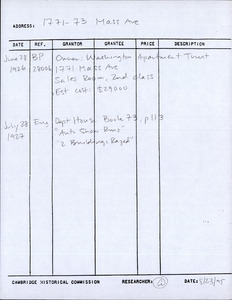 ADDRESS: 1771-73 Mass Ave
DATE REF. GRANTOR GRANTEE PRICE DESCRIPTION
June 28 BP Owner: Washington Apartment Trust
1926 28006 1771 Mass Ave
Sales Room, 2nd class
Est cost: $29000
July 28 Eng Dept House Book 73, p113
1927 "Auto Show Rms"
"2 Buildings Razed"
CAMBRIDGE HISTORICAL COMMISSION RESEARCHER: DATE: